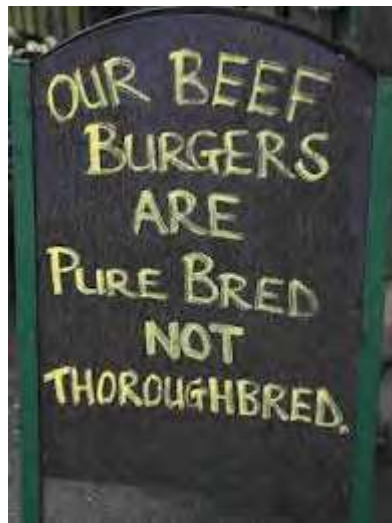 OUR BEEF
BURGERS
ARE
PURE BRED
NOT
THOROUGHBRED.